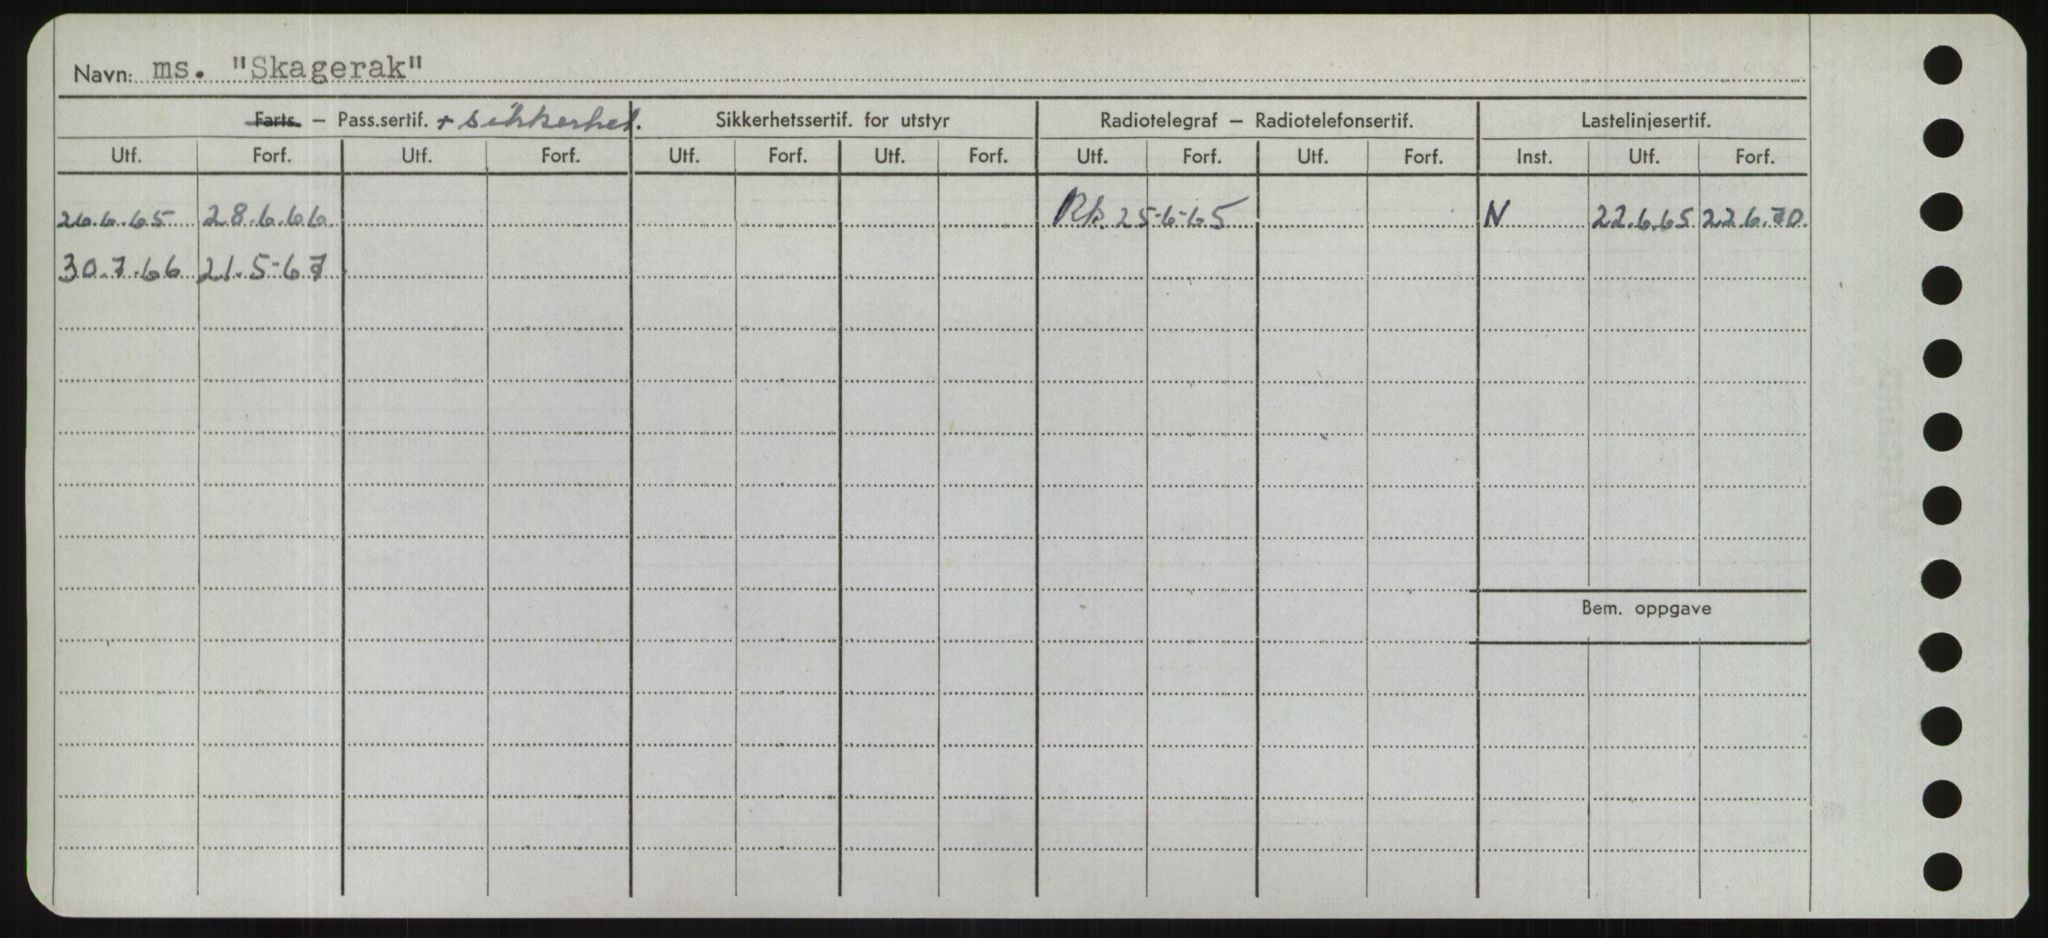 Navn: ms. "Skagerak"
Farts. – Pass.sertif. + sikkerhet. Sikkerhetssertif. for utstyr Radiotelegraf – Radiotelefonsertif. Lastelinjesertif.
Utf. Forf. Utf. Forf. Utf. Forf. Utf. Forf. Utf. Forf. Utf. Forf. Inst. Utf. Forf.
26.6.65 28.6.66 Rk. 25-6-65 N 22.6.65 22.6.70.
30.7.66 21.5-67
Bem. oppgave